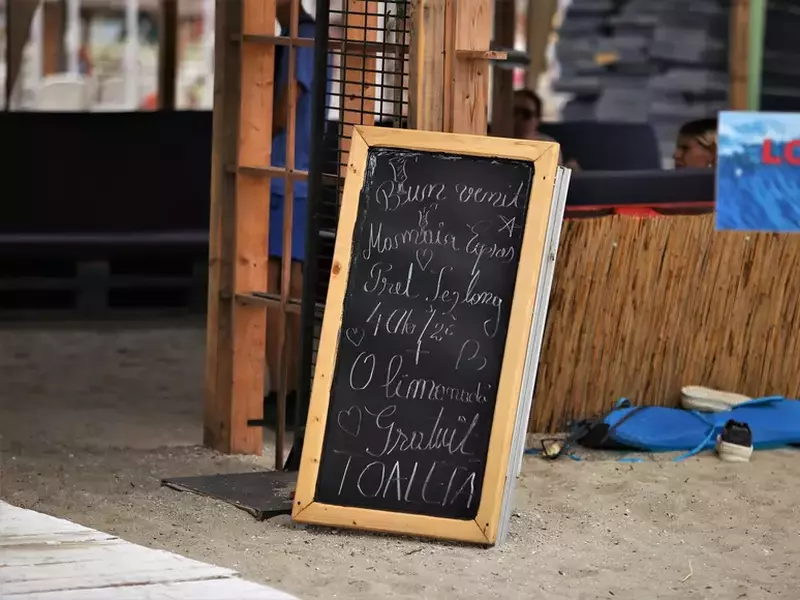 Bun venit
Mamaia Expres
Pret Sezlong
40 lei/zi
+
O limonadă
Gratuit
TOALETA
LO